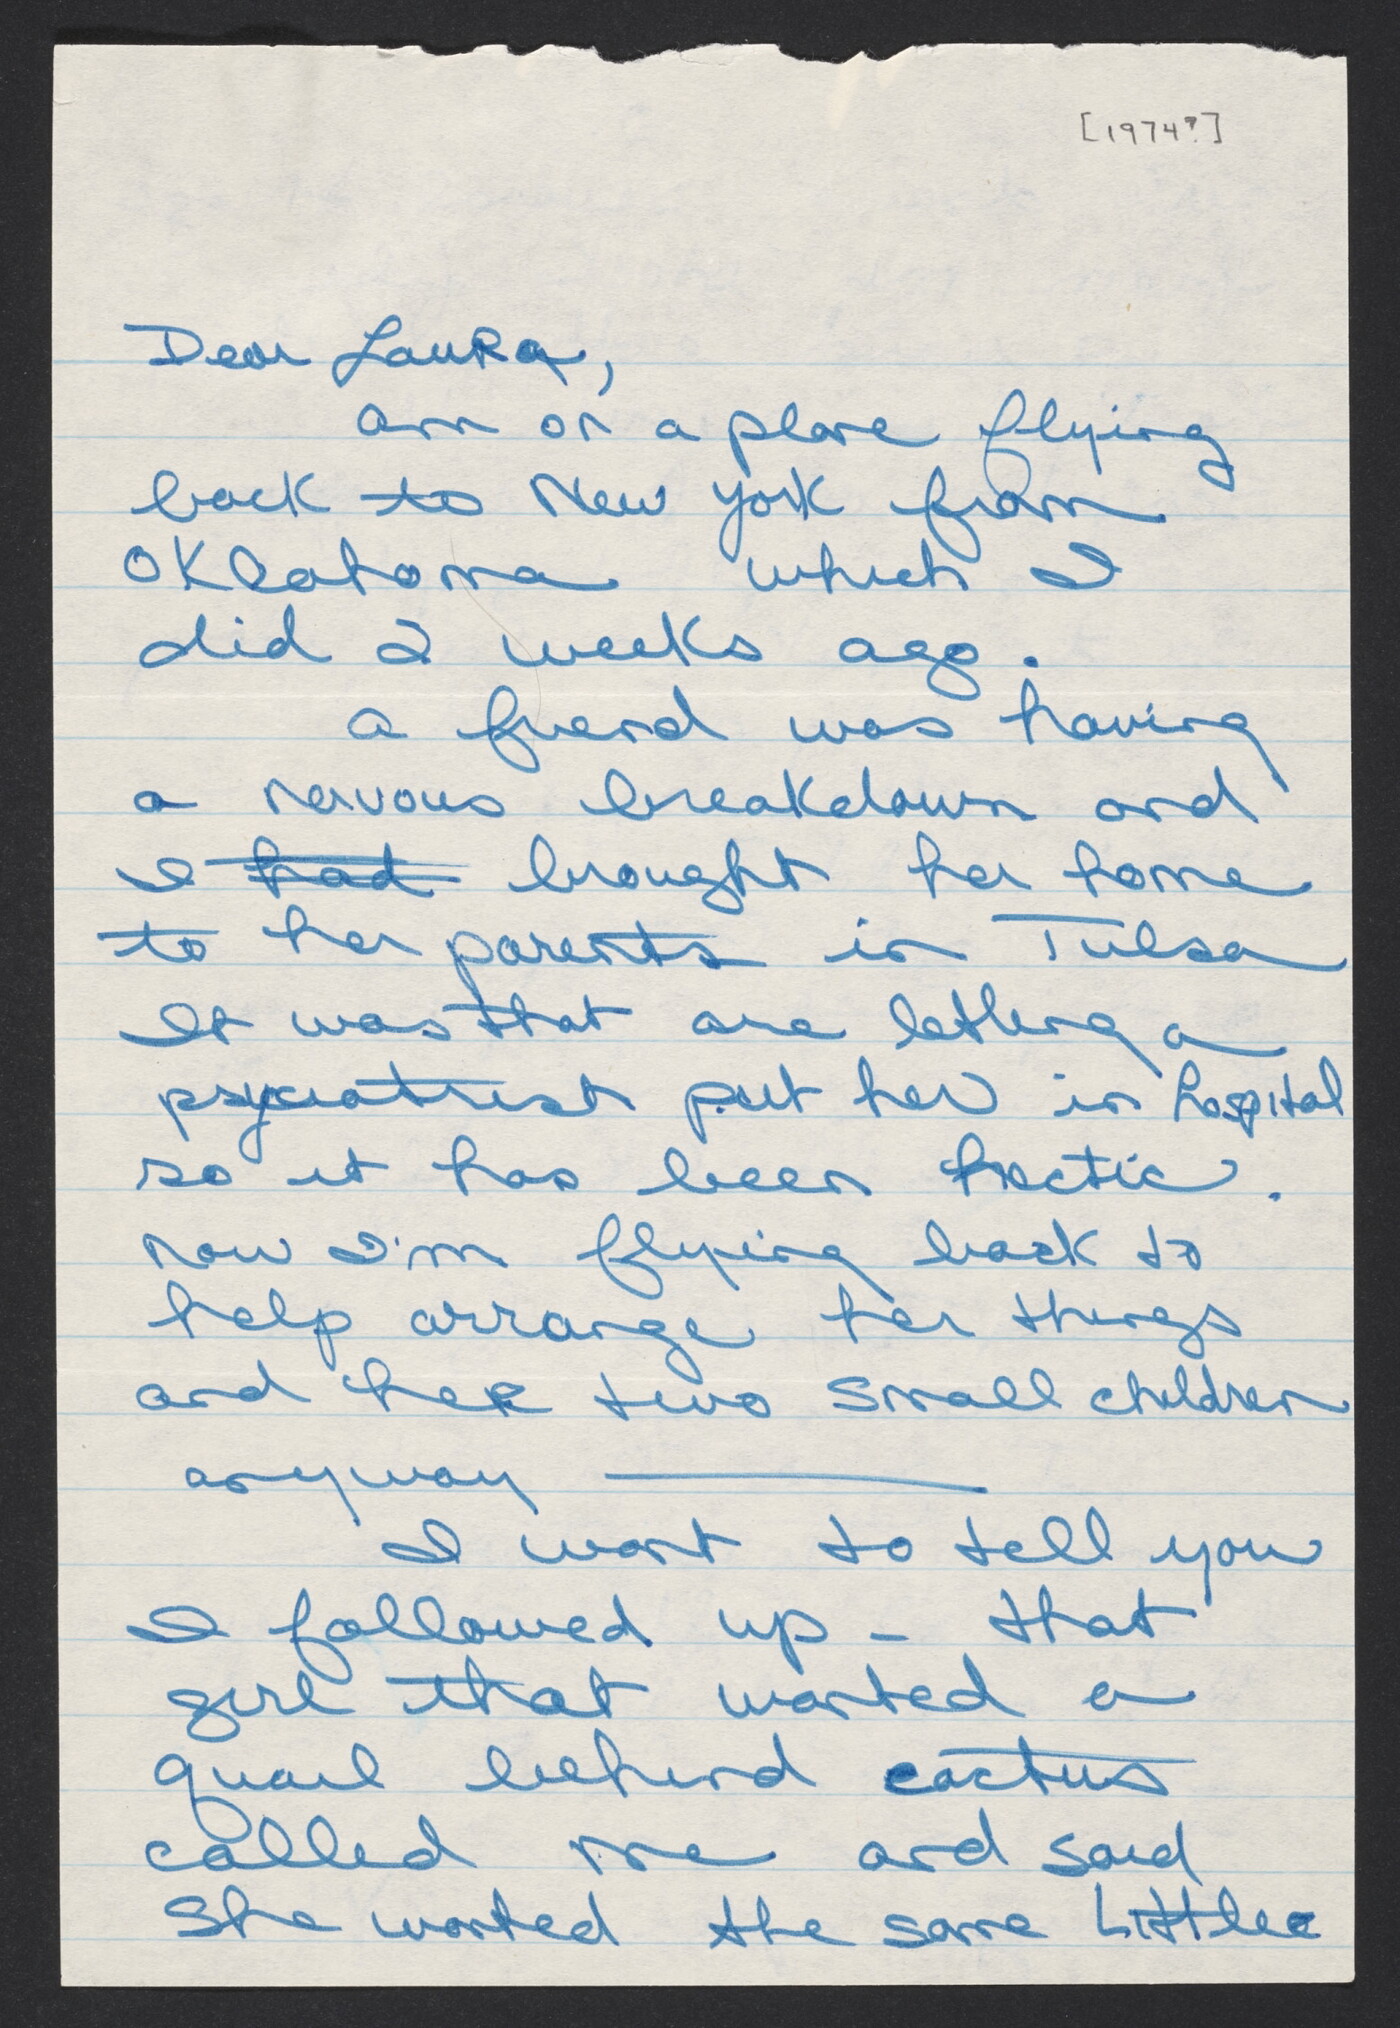 [1974?]
Dear Laura,
am on a plane flying
back to New York from
Oklahoma which I
did 2 weeks ago.
a friend was having
a nervous breakdown and
I had brought her home
to her parents in Tulsa
It was that are letting a
psyciatrist put her in hospital
so it has been hectic.
Now I'm flying back to
help arrange her things
and her two small children
anyway ———
I want to tell you
I followed up - that
girl that wanted a
quail behind cactus
called me and said
She wanted the same Little